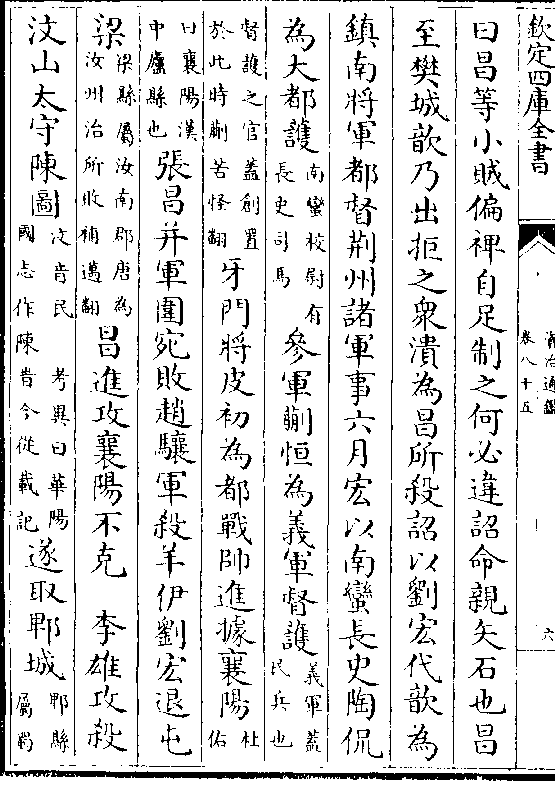 欽定四庫全書
資治通鑑
卷八十五
六
曰昌等小賊偏裨自足制之何必違詔命親矢石也昌
至樊城歆乃出拒之衆潰為昌所殺詔以劉宏代歆為
鎮南將軍都督荆州諸軍事六月宏以南蠻長史陶侃
為大都護南蠻校尉有長史司馬參軍蒯恒為義軍督護義軍蓋民兵也
督護之官蓋創置於此時蒯苦怪翻牙門將皮初為都戰帥進據襄陽杜佑
曰襄陽漢中廬縣也張昌并軍圍宛敗趙驤軍殺羊伊劉宏退屯
梁梁縣屬汝南郡唐為汝州治所敗補邁翻昌進攻襄陽不克 李雄攻殺
汶山太守陳圖汶音民 考異曰華陽國志作陳旹今從載記遂取郫城郫縣屬蜀